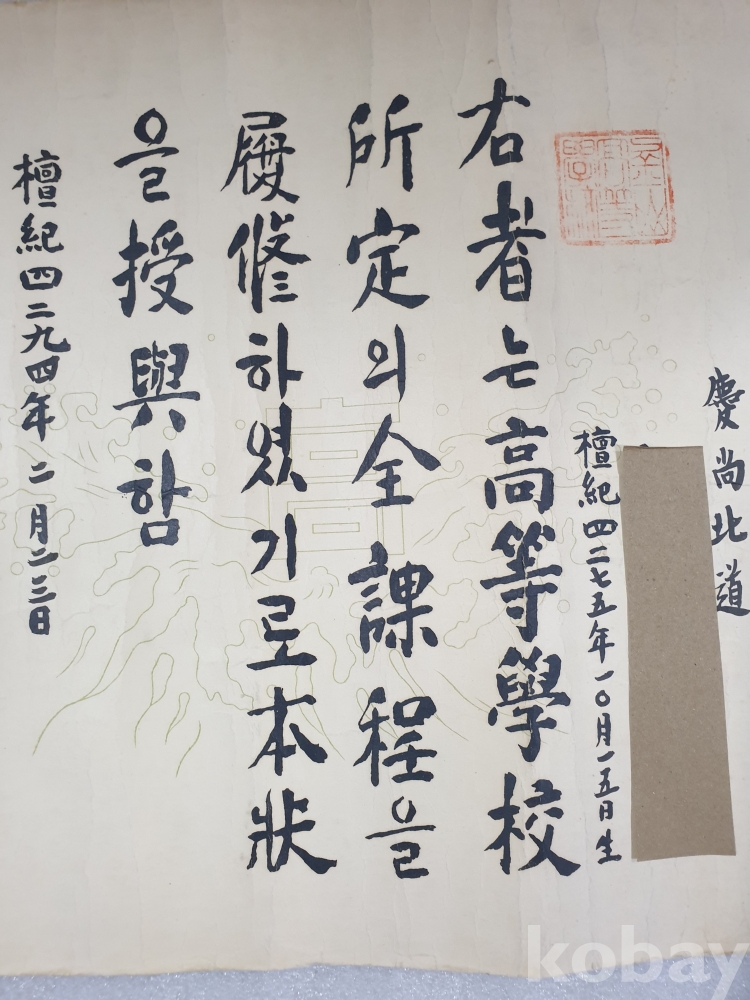 慶尚北道
檀紀四二七五年一〇月一五日生
右者는高等學校
所定의全課程을
履修하였기로本狀
을授與함
檀紀四二九四年二月二三日
高
kobay